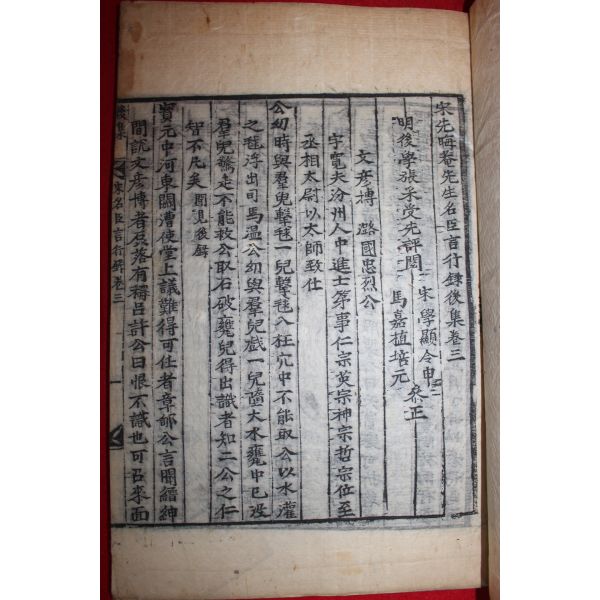 宋朱晦菴先生名臣言行錄後集卷三
明後學張采受先評閱
宋學顯令申
馬嘉植培元
叅正
文彦博 潞國忠烈公
字寬夫汾州人中進士第事仁宗英宗神宗哲宗位至
丞相太尉以太師致仕
公幼時與羣兒擊毬一兒擊毬入柱穴中不能取公以水灌
之毬浮出司馬温公幼與羣兒戲一兒墮大水甕中已沒
羣兒驚走不能救公取石破甕兒得出識者知二公之仁
智不凡矣 聞見後錄
寶元中河東闕漕使堂上議難得可任者章郇公言聞縉紳
間說文彦博者磊落有稱呂許公曰恨不識也可召來面
後集
宋名臣言行錄卷三